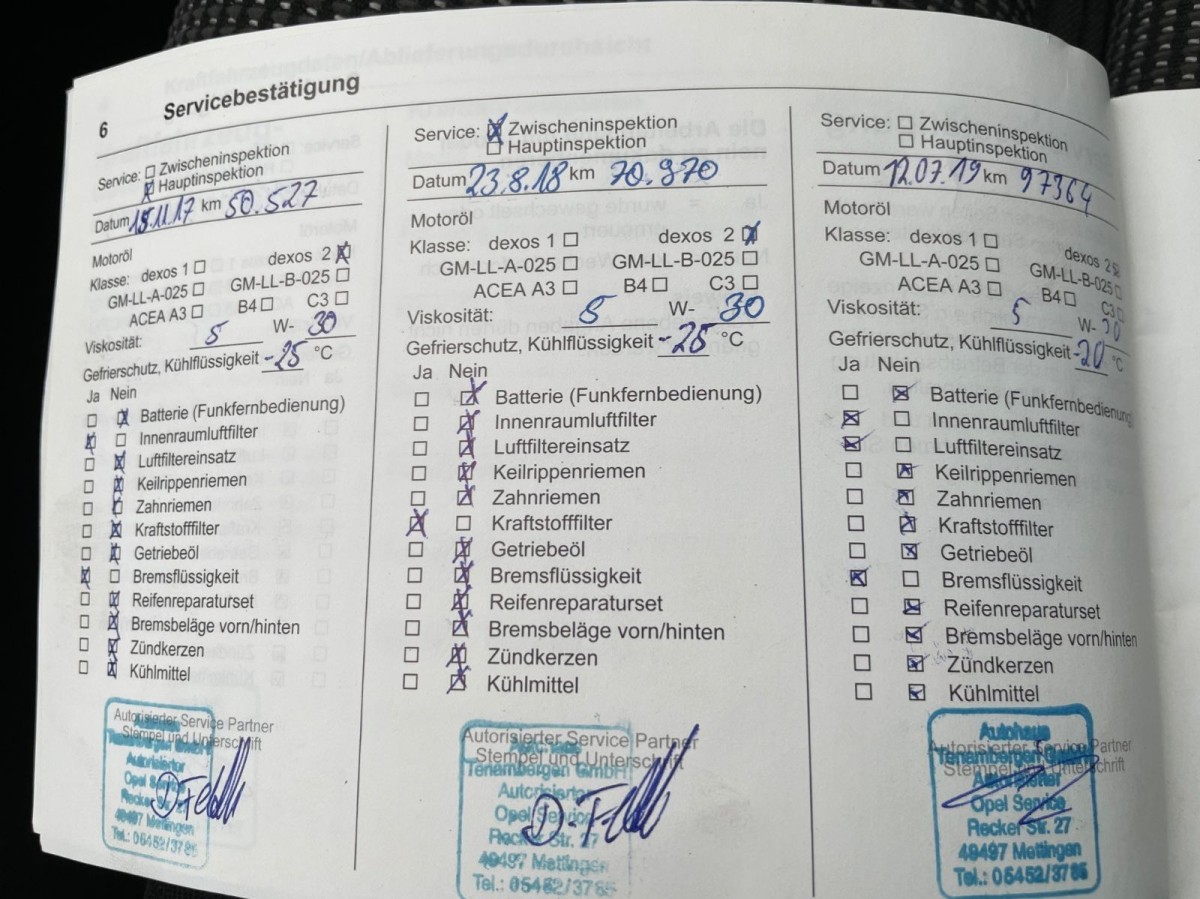 6 Servicebestätigung
Service: ☐ Zwischeninspektion
☒ Hauptinspektion
Datum 15.11.17 km 50.527
Motoröl
Klasse: dexos 1 ☐ dexos 2 ☒
GM-LL-A-025 ☐ GM-LL-B-025 ☐
ACEA A3 ☐ B4 ☐ C3 ☐
Viskosität: 5 W- 30
Gefrierschutz, Kühlflüssigkeit -25 °C
Ja Nein
☐ ☒ Batterie (Funkfernbedienung)
☒ ☐ Innenraumluftfilter
☐ ☒ Luftfiltereinsatz
☐ ☒ Keilrippenriemen
☐ ☒ Zahnriemen
☐ ☒ Kraftstofffilter
☐ ☒ Getriebeöl
☒ ☐ Bremsflüssigkeit
☐ ☒ Reifenreparaturset
☐ ☒ Bremsbeläge vorn/hinten
☐ ☒ Zündkerzen
☐ ☒ Kühlmittel
Autorisierter Service Partner
Stempel und Unterschrift
Tenambergen GmbH
Autorisierter
Opel Service
Recker Str. 27
49497 Mettingen
Tel.: 05452/3785
Service: ☒ Zwischeninspektion
☐ Hauptinspektion
Datum 23.8.18 km 70.970
Motoröl
Klasse: dexos 1 ☐ dexos 2 ☒
GM-LL-A-025 ☐ GM-LL-B-025 ☐
ACEA A3 ☐ B4 ☐ C3 ☐
Viskosität: 5 W- 30
Gefrierschutz, Kühlflüssigkeit -25 °C
Ja Nein
☐ ☒ Batterie (Funkfernbedienung)
☐ ☒ Innenraumluftfilter
☐ ☒ Luftfiltereinsatz
☐ ☒ Keilrippenriemen
☐ ☒ Zahnriemen
☒ ☐ Kraftstofffilter
☐ ☒ Getriebeöl
☐ ☒ Bremsflüssigkeit
☐ ☒ Reifenreparaturset
☐ ☒ Bremsbeläge vorn/hinten
☐ ☒ Zündkerzen
☐ ☒ Kühlmittel
Autorisierter Service Partner
Stempel und Unterschrift
Tenambergen GmbH
Autorisierter
Opel Service
Recker Str. 27
49497 Mettingen
Tel.: 05452/3785
Service: ☐ Zwischeninspektion
☐ Hauptinspektion
Datum 12.07.19 km 97364
Motoröl
Klasse: dexos 1 ☐ dexos 2 ☒
GM-LL-A-025 ☐ GM-LL-B-025 ☐
ACEA A3 ☐ B4 ☐ C3 ☐
Viskosität: 5 W- 30
Gefrierschutz, Kühlflüssigkeit -20 °C
Ja Nein
☐ ☒ Batterie (Funkfernbedienung
☒ ☐ Innenraumluftfilter
☒ ☐ Luftfiltereinsatz
☐ ☒ Keilrippenriemen
☐ ☒ Zahnriemen
☐ ☒ Kraftstofffilter
☐ ☒ Getriebeöl
☒ ☐ Bremsflüssigkeit
☐ ☒ Reifenreparaturset
☐ ☒ Bremsbeläge vorn/hinten
☐ ☒ Zündkerzen
☐ ☒ Kühlmittel
Autorisierter Service Partner
Stempel und Unterschrift
Autohaus
Tenambergen GmbH
Autorisierter
Opel Service
Recker Str. 27
49497 Mettingen
Tel.: 05452/3785